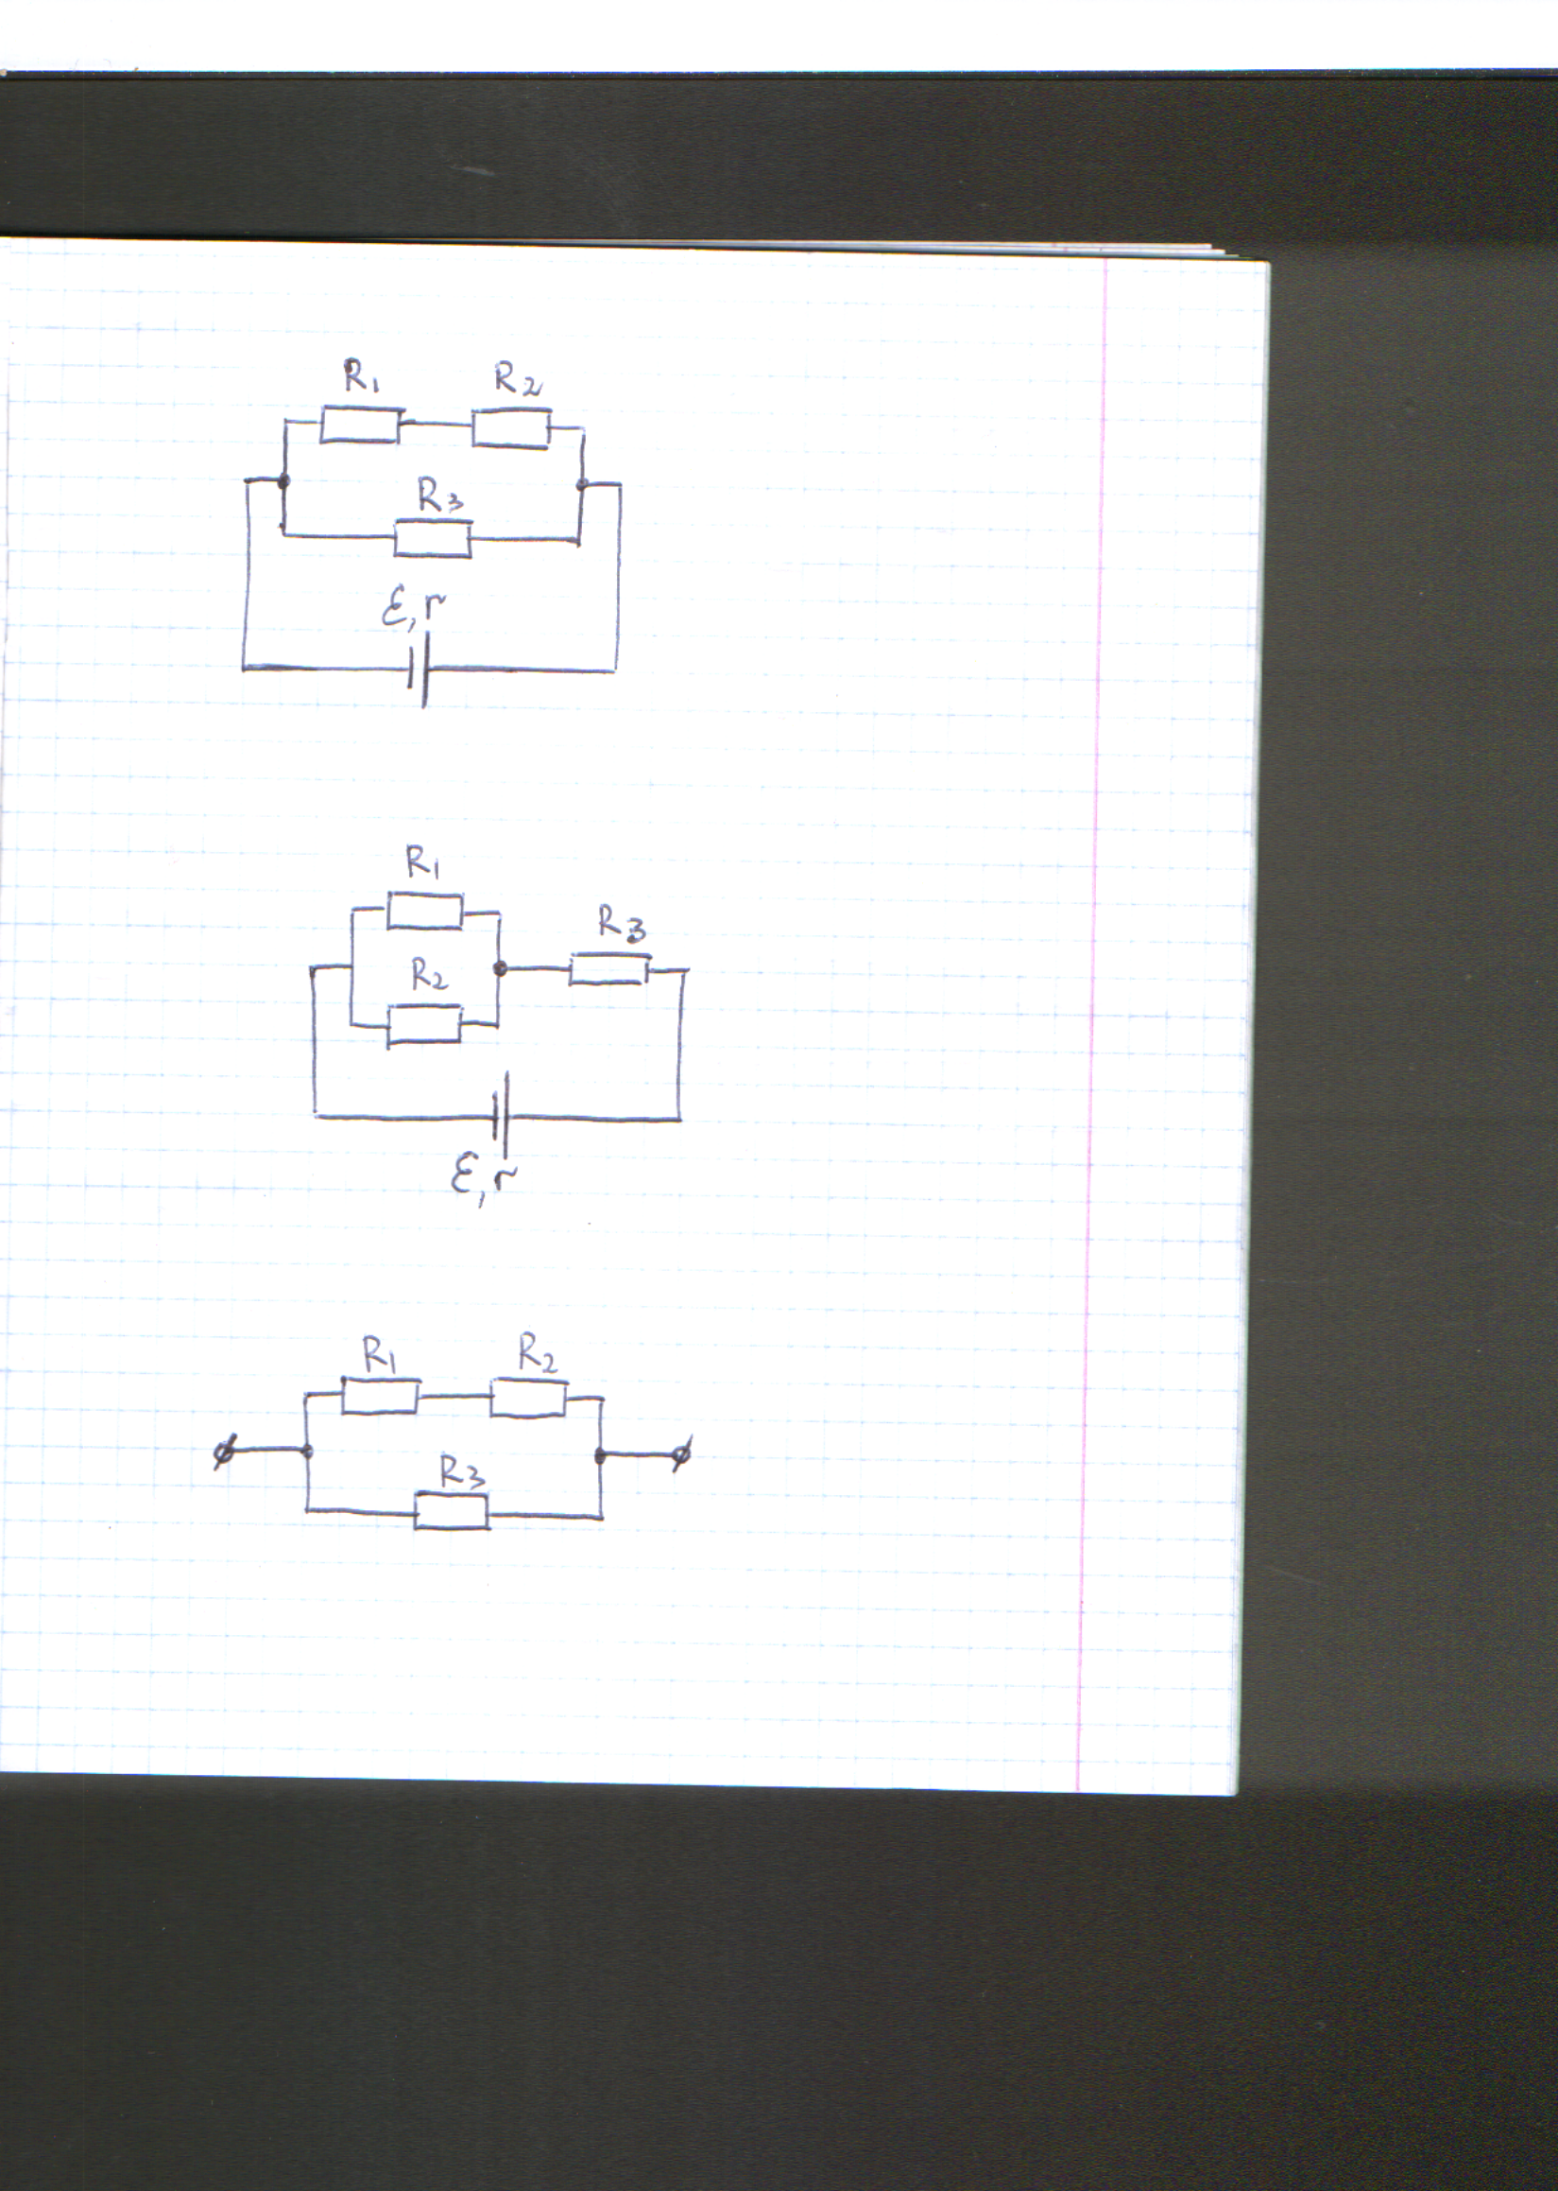 R1 R2
R3
ℰ, r
R1
R3
R2
ℰ, r
R1 R2
R3